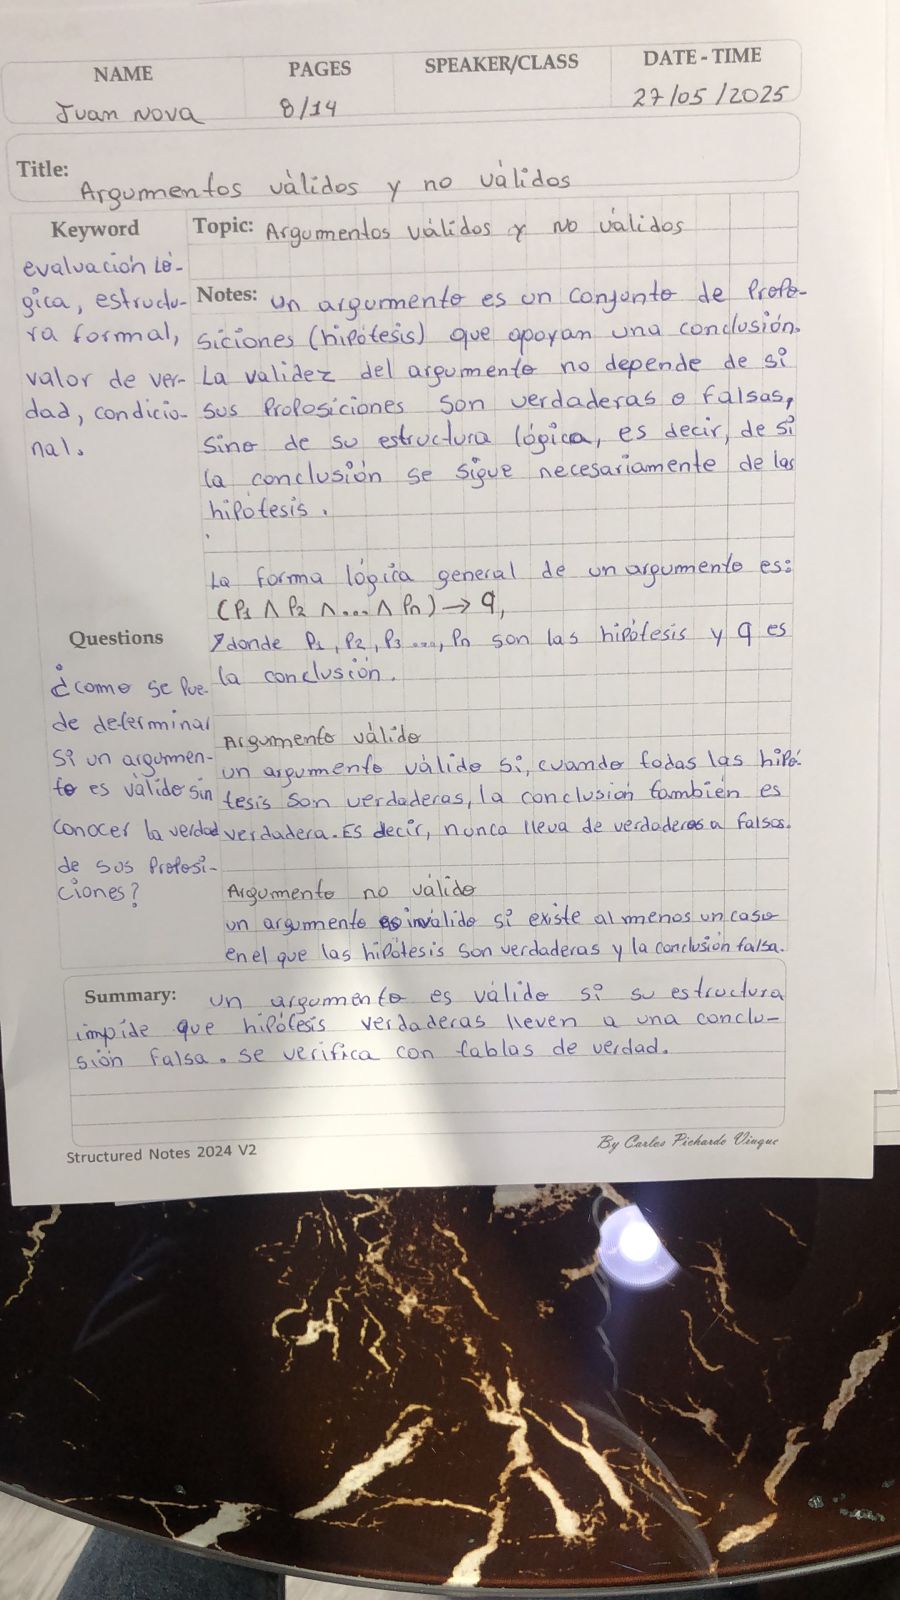 NAME PAGES SPEAKER/CLASS DATE - TIME
Juan Nova 8/14 27/05/2025
Title: Argumentos válidos y no válidos
Keyword
evaluación ló-
gica, estructu-
ra formal,
valor de ver-
dad, condicio-
nal.
Topic: Argumentos válidos y no válidos
Notes: un argumento es un conjunto de propo-
siciones (hipótesis) que apoyan una conclusión.
La validez del argumento no depende de si
sus proposiciones son verdaderas o falsas,
sino de su estructura lógica, es decir, de si
la conclusión se sigue necesariamente de las
hipótesis.
La forma lógica general de un argumento es:
(P1 ∧ P2 ∧ ... ∧ Pn) → q,
donde P1, P2, P3 ..., Pn son las hipótesis y q es
la conclusión.
Argumento válido
un argumento válido si, cuando todas las hipó-
tesis son verdaderas, la conclusión también es
verdadera. Es decir, nunca lleva de verdaderos a falsos.
Argumento no válido
un argumento es inválido si existe al menos un caso
en el que las hipótesis son verdaderas y la conclusión falsa.
Questions
¿como se pue-
de determinar
si un argumen-
to es válido sin
conocer la verdad
de sus proposi-
ciones?
Summary: un argumento es válido si su estructura
impide que hipótesis verdaderas lleven a una conclu-
sión falsa. se verifica con tablas de verdad.
Structured Notes 2024 V2 By Carlos Pichardo Viuque